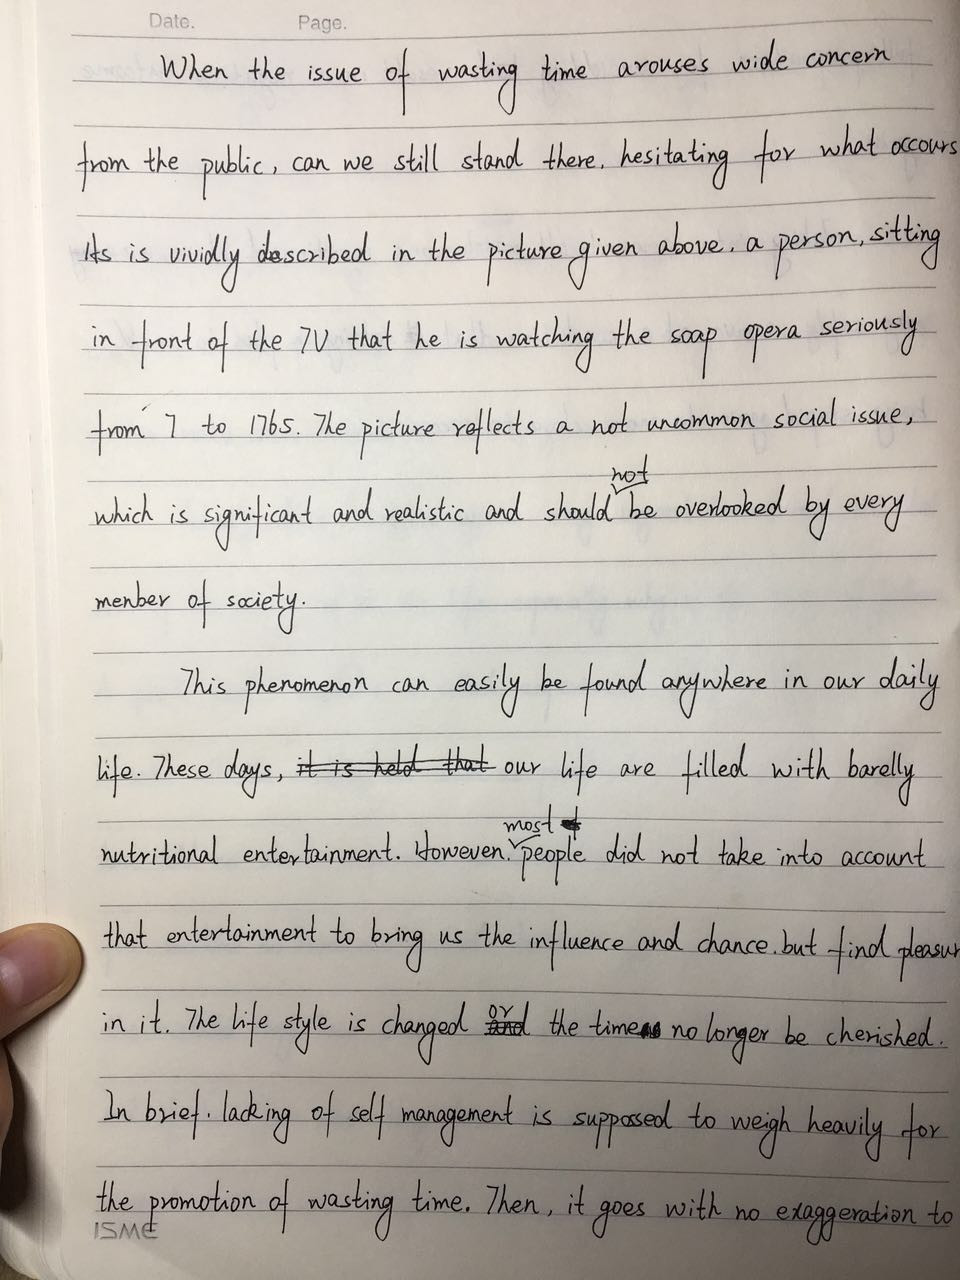 Date. Page.
When the issue of wasting time arouses wide concern
from the public, can we still stand there, hesitating for what occours
As is vividly described in the picture given above, a person, sitting
in front of the TV that he is watching the soap opera seriously
from 7 to 1765. The picture reflects a not uncommon social issue,
which is significant and realistic and should not be overlooked by every
menber of society.
This phenomenon can easily be found anywhere in our daily
life. These days, it is held that our life are filled with barelly
nutritional entertainment. However, most people did not take into account
that entertainment to bring us the influence and chance, but find pleasur
in it. The life style is changed or the time no longer be cherished.
In brief, lacking of self management is suppossed to weigh heavily for
the promotion of wasting time. Then, it goes with no exaggeration to
ISME